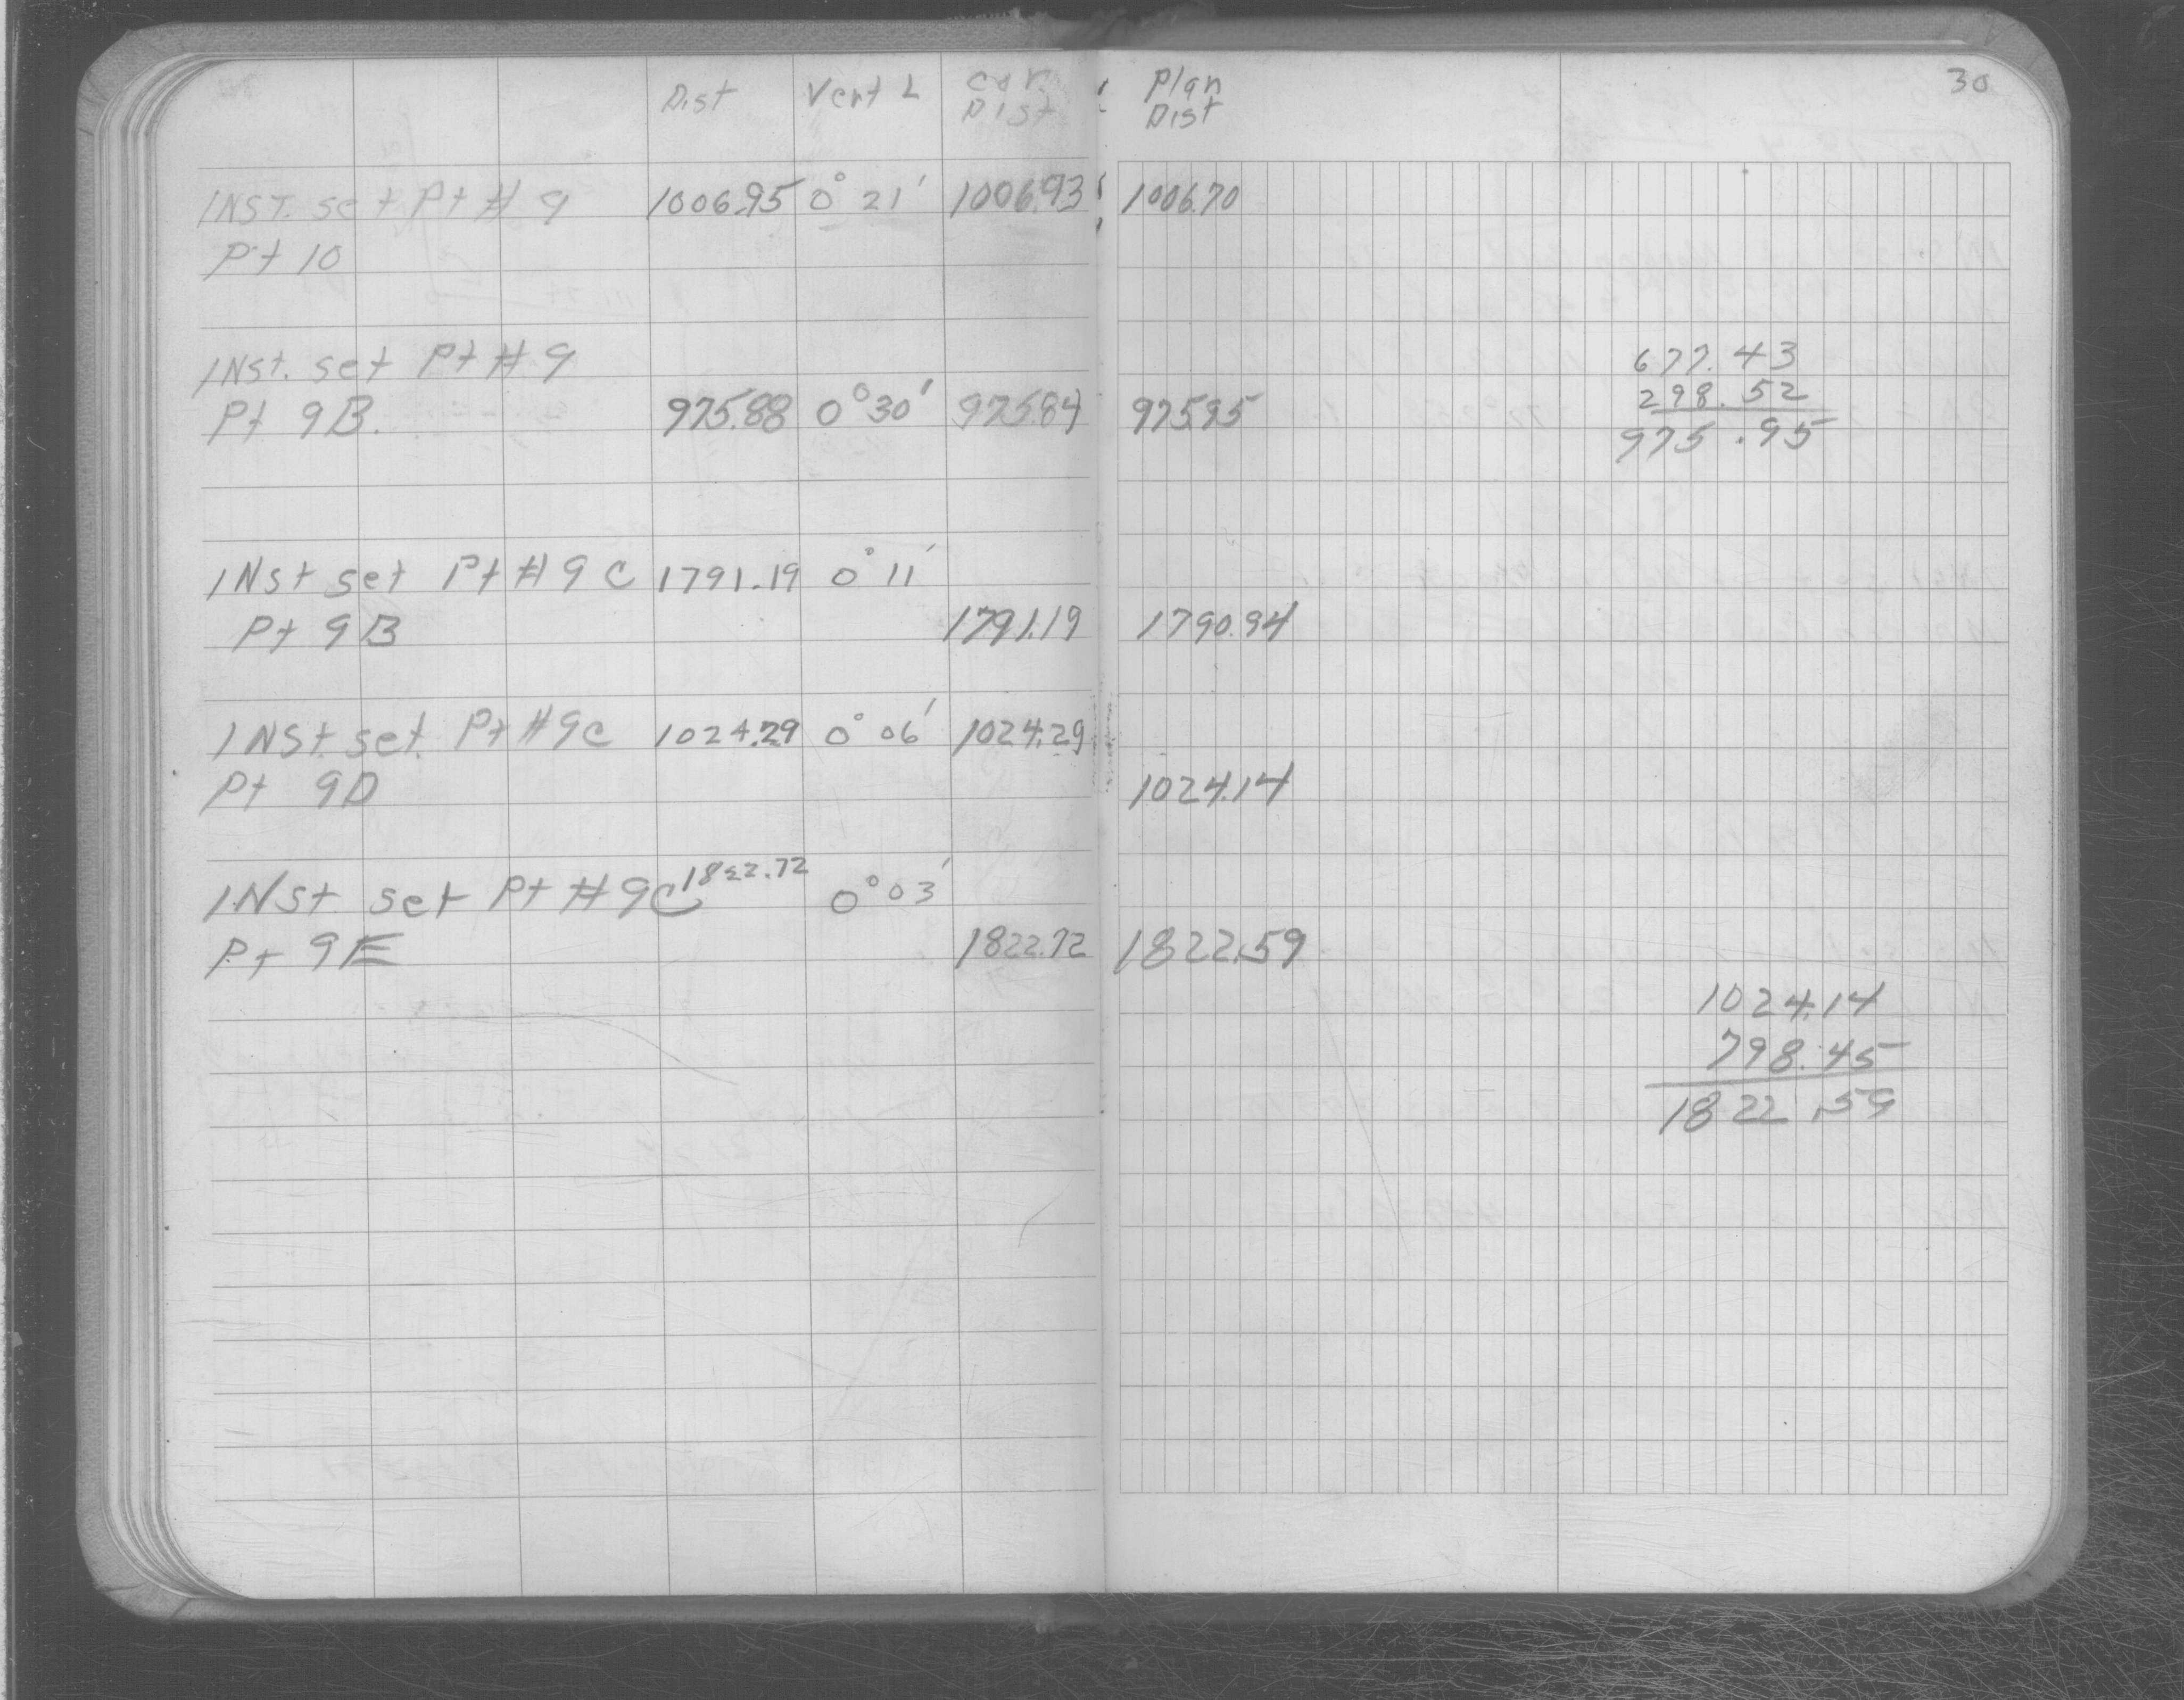 30
Dist Vert ∠ Cor. Dist Plan Dist
INST. set Pt # 9 1006.95 0° 21' 1006.93 1006.70
Pt 10
INst. set Pt # 9
Pt 9B. 975.88 0° 30' 975.84 975.95
677.43
298.52
975.95
INst set Pt # 9C 1791.19 0° 11'
Pt 9B 1791.19 1790.94
INst set Pt #9c 1024.29 0° 06' 1024.29
Pt 9D 1024.14
INst set Pt # 9C 1822.72 0° 03'
Pt 9E 1822.72 1822.59
1024.14
798.45
1822.59